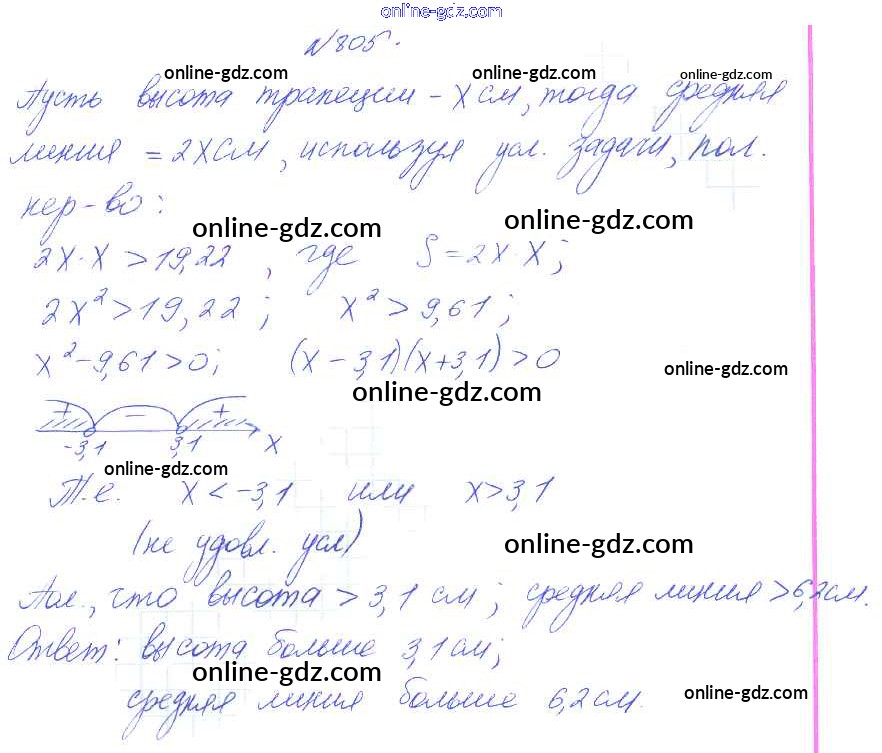 online-gdz.com
№805.
online-gdz.com online-gdz.com online-gdz.com
Пусть высота трапеции - x см, тогда средняя
линия = 2x см, используя усл. задачи, пол.
нер-во:
online-gdz.com online-gdz.com
2x·x > 19,22, где S = 2x·x;
2x² > 19,22; x² > 9,61;
x² - 9,61 > 0; (x - 3,1)(x + 3,1) > 0
online-gdz.com
online-gdz.com
+ - +
-3,1 3,1 x
online-gdz.com
Т.е. x < -3,1 или x > 3,1
(не удовл. усл)
online-gdz.com
Пол., что высота > 3,1 см; средняя линия > 6,2 см.
Ответ: высота больше 3,1 см;
online-gdz.com
средняя линия больше 6,2 см.
online-gdz.com